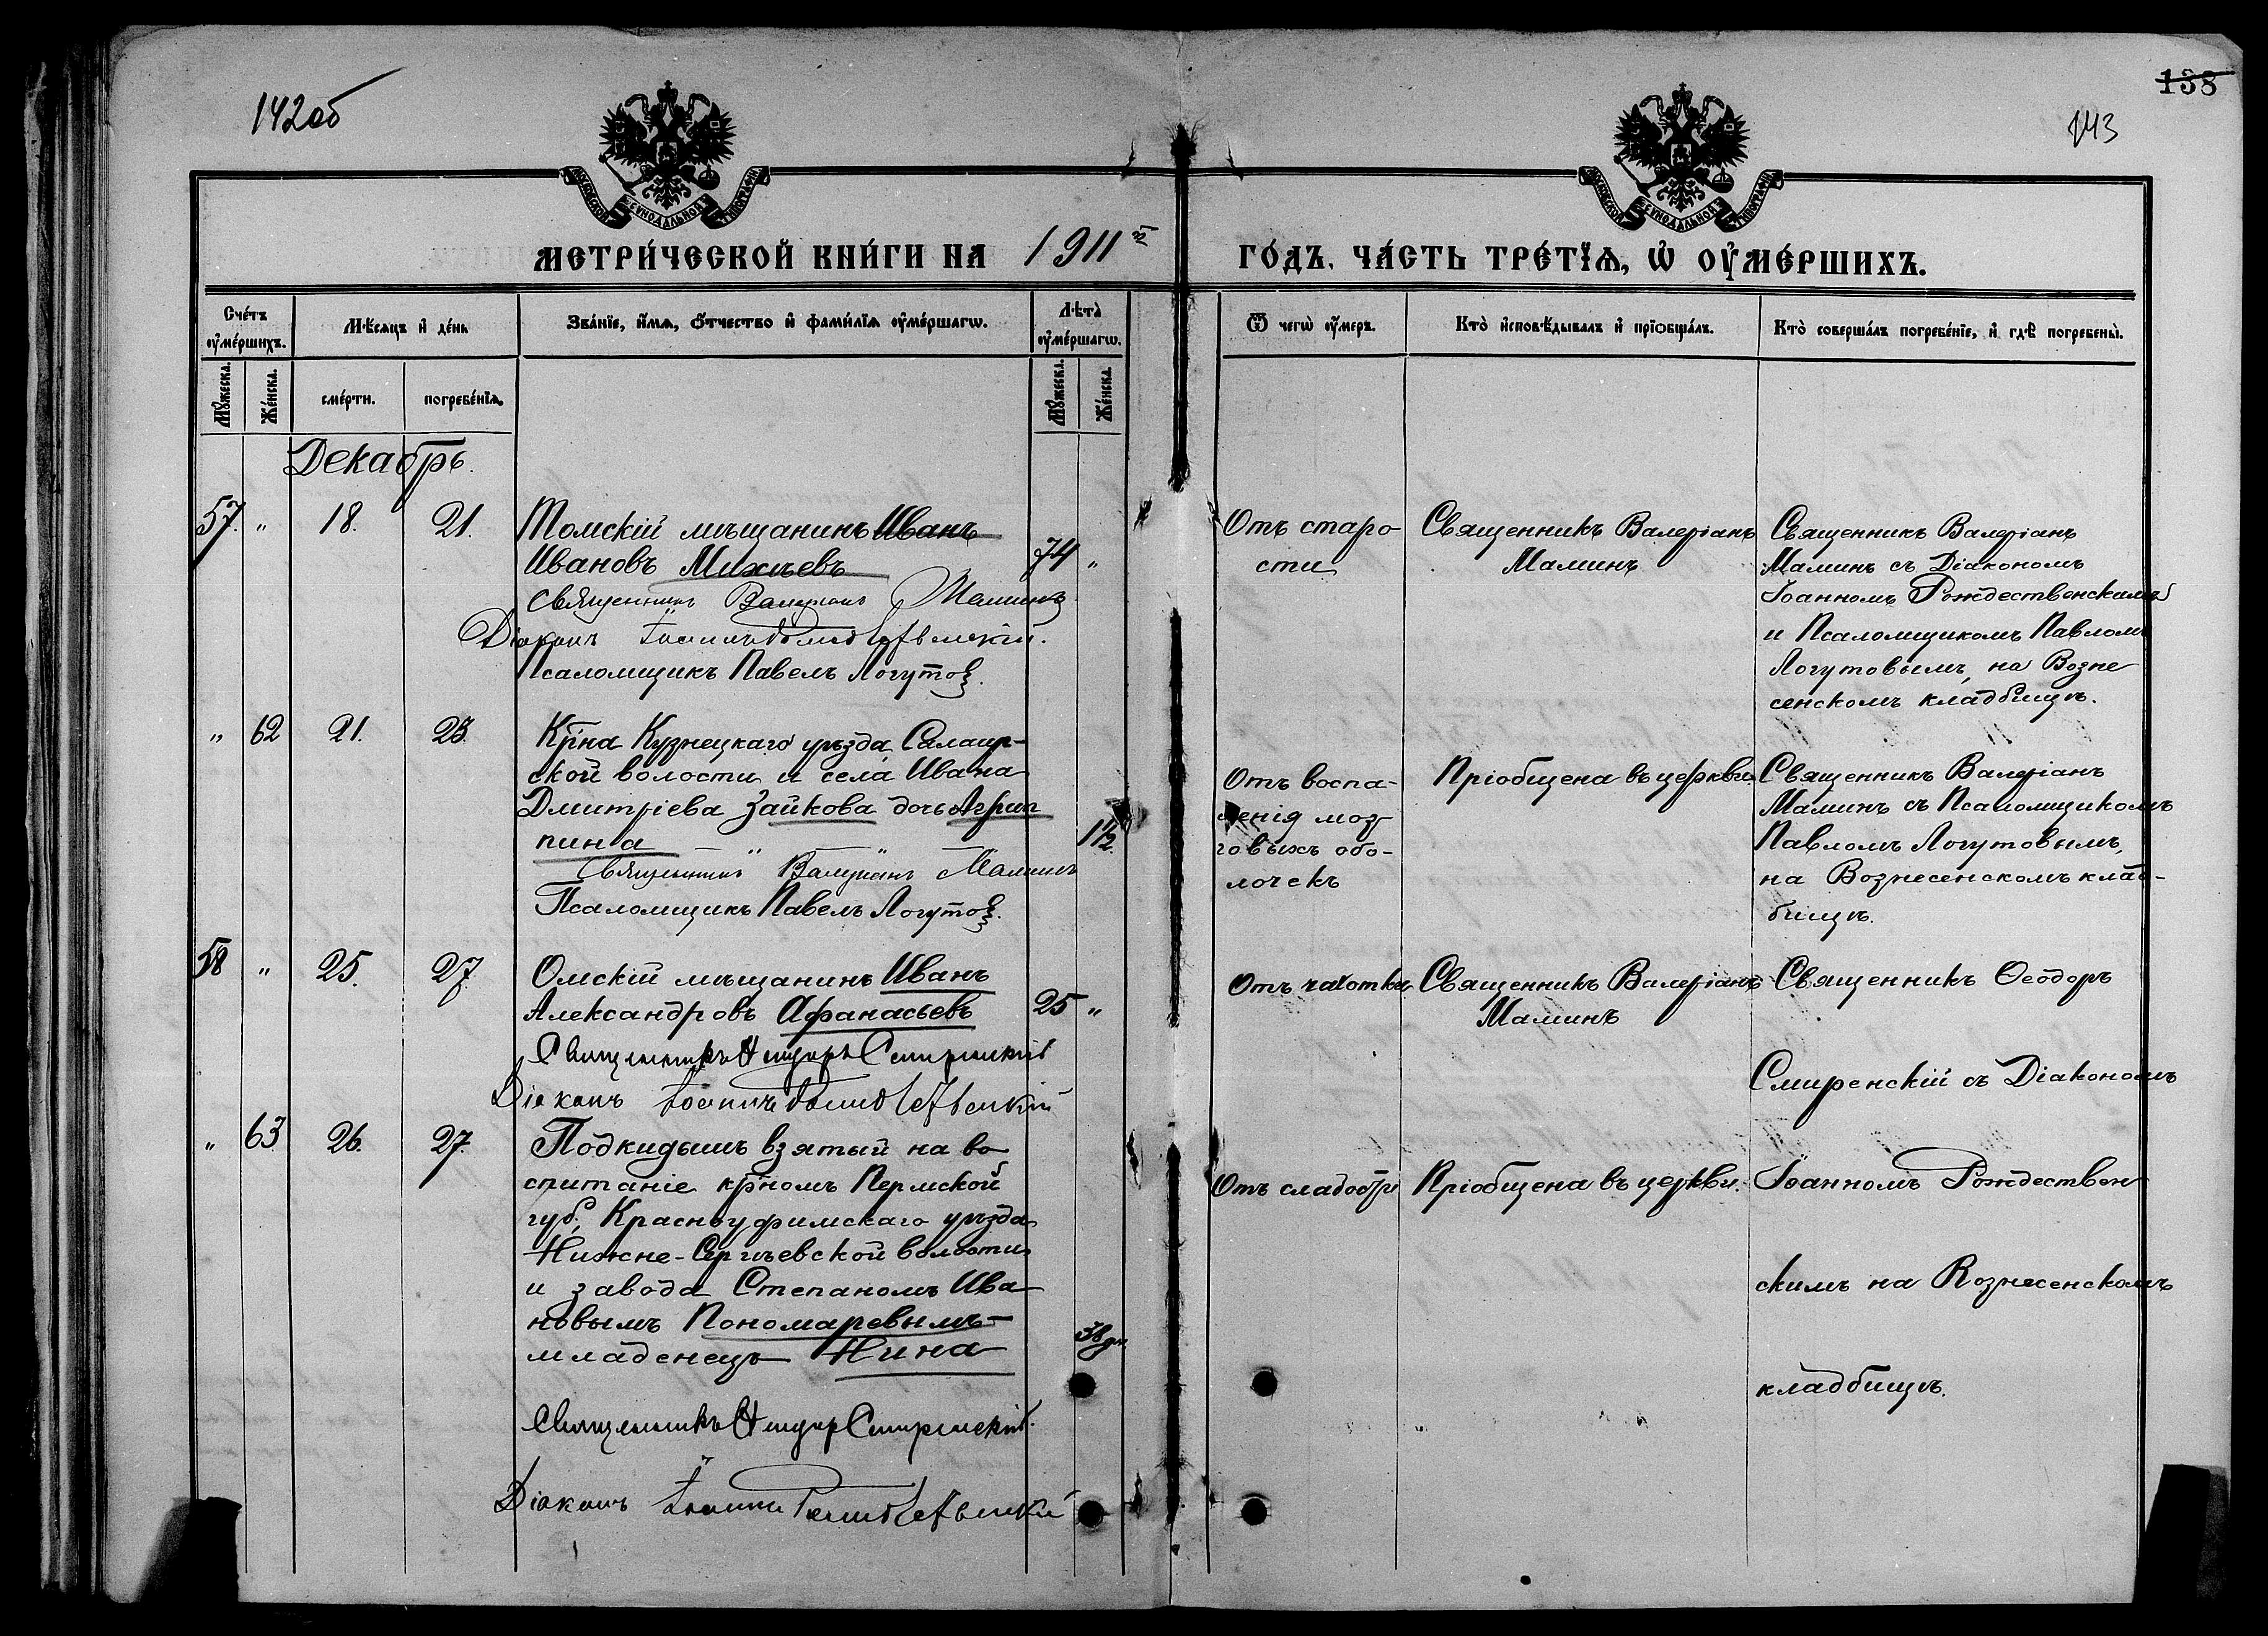 142об
138
143
МОСКОВСКОЙ СУНОДАЛЬНОЙ ТИПОГРАФІИ
МОСКОВСКОЙ СУНОДАЛЬНОЙ ТИПОГРАФІИ
МЕТРИ́ЧЕСКОЙ КНИ́ГИ НА 1911й
ГО́ДЪ, ЧА́СТЬ ТРЕ́ТЇѦ, Ѡ҆ ОУ҆МЕ́РШИХЪ.
Сче́тъ оу҆ме́ршихъ.
Мѣ́сѧцъ и҆ де́нь
Зва́нїе, и҆́мѧ, ѻ҆́тчество и҆ фами́лїѧ оу҆ме́ршагѡ.
Лѣ́та оу҆ме́ршагѡ.
Ѿ чегѡ̀ оу҆́меръ.
Кто̀ и҆сповѣ́дывалъ и҆ прїѡбща́лъ.
Кто̀ соверша́лъ погребе́нїе, и҆ гдѣ̀ погребены̀.
Мꙋ́жеска.
Же́нска.
сме́рти.
погребе́нїѧ.
Мꙋ́жеска.
Же́нска.
Декабрь.
57. " 18. 21.
Томскій мѣщанинъ Иванъ
Ивановъ Михѣевъ
74 "
Священникъ Валеріанъ Маминъ
Діаконъ Іоаннъ Рождественскій.
Псаломщикъ Павелъ Логутовъ.
Отъ старо
сти
Священникъ Валеріанъ
Маминъ
Священникъ Валеріанъ
Маминъ съ Діакономъ
Іоанномъ Рождественскимъ
и Псаломщикомъ Павломъ
Логутовымъ, на Возне
сенскомъ кладбищѣ.
" 62 21. 23.
Кр̃на Кузнецкаго уѣзда, Салаир-
ской волости и села Ивана
Дмитріева Зайкова дочь Агрип
пина
1½
Священникъ Валеріанъ Маминъ
Псаломщикъ Павелъ Логутовъ.
Отъ воспа-
ленія моз
говыхъ обо-
лочекъ
Пріобщена въ церкви.
Священникъ Валеріанъ
Маминъ съ Псаломщикомъ
Павломъ Логутовымъ,
на Вознесенскомъ клад-
бищѣ.
58 " 25. 27.
Омскій мѣщанинъ Иванъ
Александровъ Афанасьевъ
25 "
Священникъ Ѳеодоръ Смиренскій
Діаконъ Іоаннъ Рождественскій
Отъ чахотки
Священникъ Валеріанъ
Маминъ
Священникъ Ѳеодоръ
Смиренскій съ Діакономъ
" 63 26. 27.
Подкидышъ взятый на во
спитаніе кр̃номъ Пермской
губ., Красноуфимскаго уѣзда
Нижне-Сергіевской волости
и завода Степаномъ Ива
новымъ Пономаревымъ-
младенецъ Нина
38 дн.
Священникъ Ѳеодоръ Смиренскій.
Діаконъ Іоаннъ Рождественскій
Отъ слабости
Пріобщена въ церкви.
Іоанномъ Рождествен
скимъ на Вознесенскомъ
кладбищѣ.